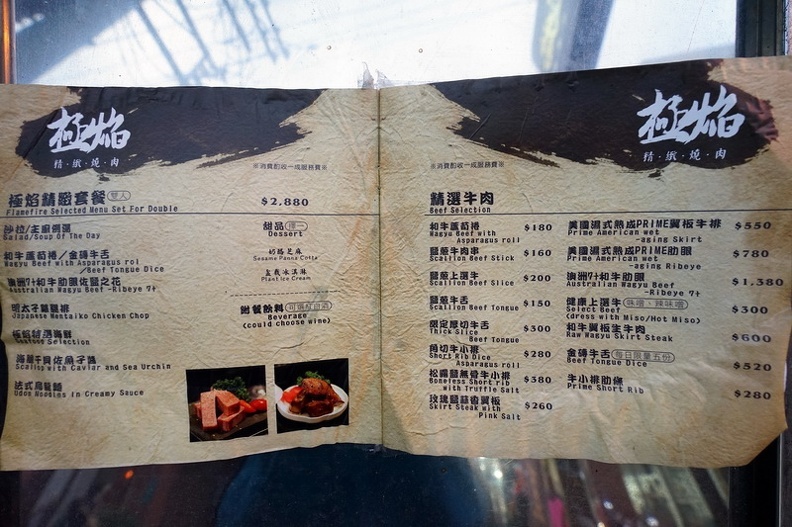 極焰
精·緻·燒·肉
※消費酌收一成服務費※
極焰精選套餐 雙人 $2,880
Flamefire Selected Menu Set For Double
沙拉/主廚例湯
Salad/Soup Of The Day
和牛蘆筍捲/金磚牛舌
Wagyu Beef with Asparagus rol
/Beef Tongue Dice
澳洲7+和牛肋眼佐鹽之花
Australian Wagyu Beef -Ribeye 7+
明太子雞腿排
Japanese Mentaiko Chicken Chop
極焰特選海鮮
Seafood Selection
海膽干貝佐魚子醬
Scallop with Caviar and Sea Urchin
法式烏龍麵
Udon Noodles in Creamy Sauce
甜品 擇一
Dessert
奶酪芝麻
Sesame Panna Cotta
盆栽冰淇淋
Plant Ice Cream
附餐飲料
Beverage
(could choose wine)
極焰
精·緻·燒·肉
※消費酌收一成服務費※
精選牛肉
Beef Selection
和牛蘆筍捲 $180
Wagyu Beef with
Asparagus rol
鹽蔥牛肉串 $160
Scallion Beef Stick
鹽蔥上選牛 $200
Scallion Beef Slice
鹽蔥牛舌 $150
Scallion Beef Tongue
限定厚切牛舌 $300
Thick Slice
Beef Tongue
角切牛小排 $280
Short Rib Dice
Asparagus roll
松露鹽無骨牛小排 $380
Boneless Short rib
with Truffle Salt
玫瑰鹽蒜香翼板 $260
Skirt Steak with
Pink Salt
美國濕式熟成PRIME翼板牛排 $550
Prime American wet
-aging Skirt
美國濕式熟成PRIME肋眼 $780
Prime American wet
-aging Ribeye
澳洲7+和牛肋眼 $1,380
Australian Wagyu Beef
-Ribeye 7+
健康上選牛 味噌、辣味噌 $300
Select Beef
(dress with Miso/Hot Miso)
和牛翼板生牛肉 $600
Raw Wagyu Skirt Steak
金磚牛舌 每日限量五份 $520
Beef Tongue Dice
牛小排肋條 $280
Prime Short Rib